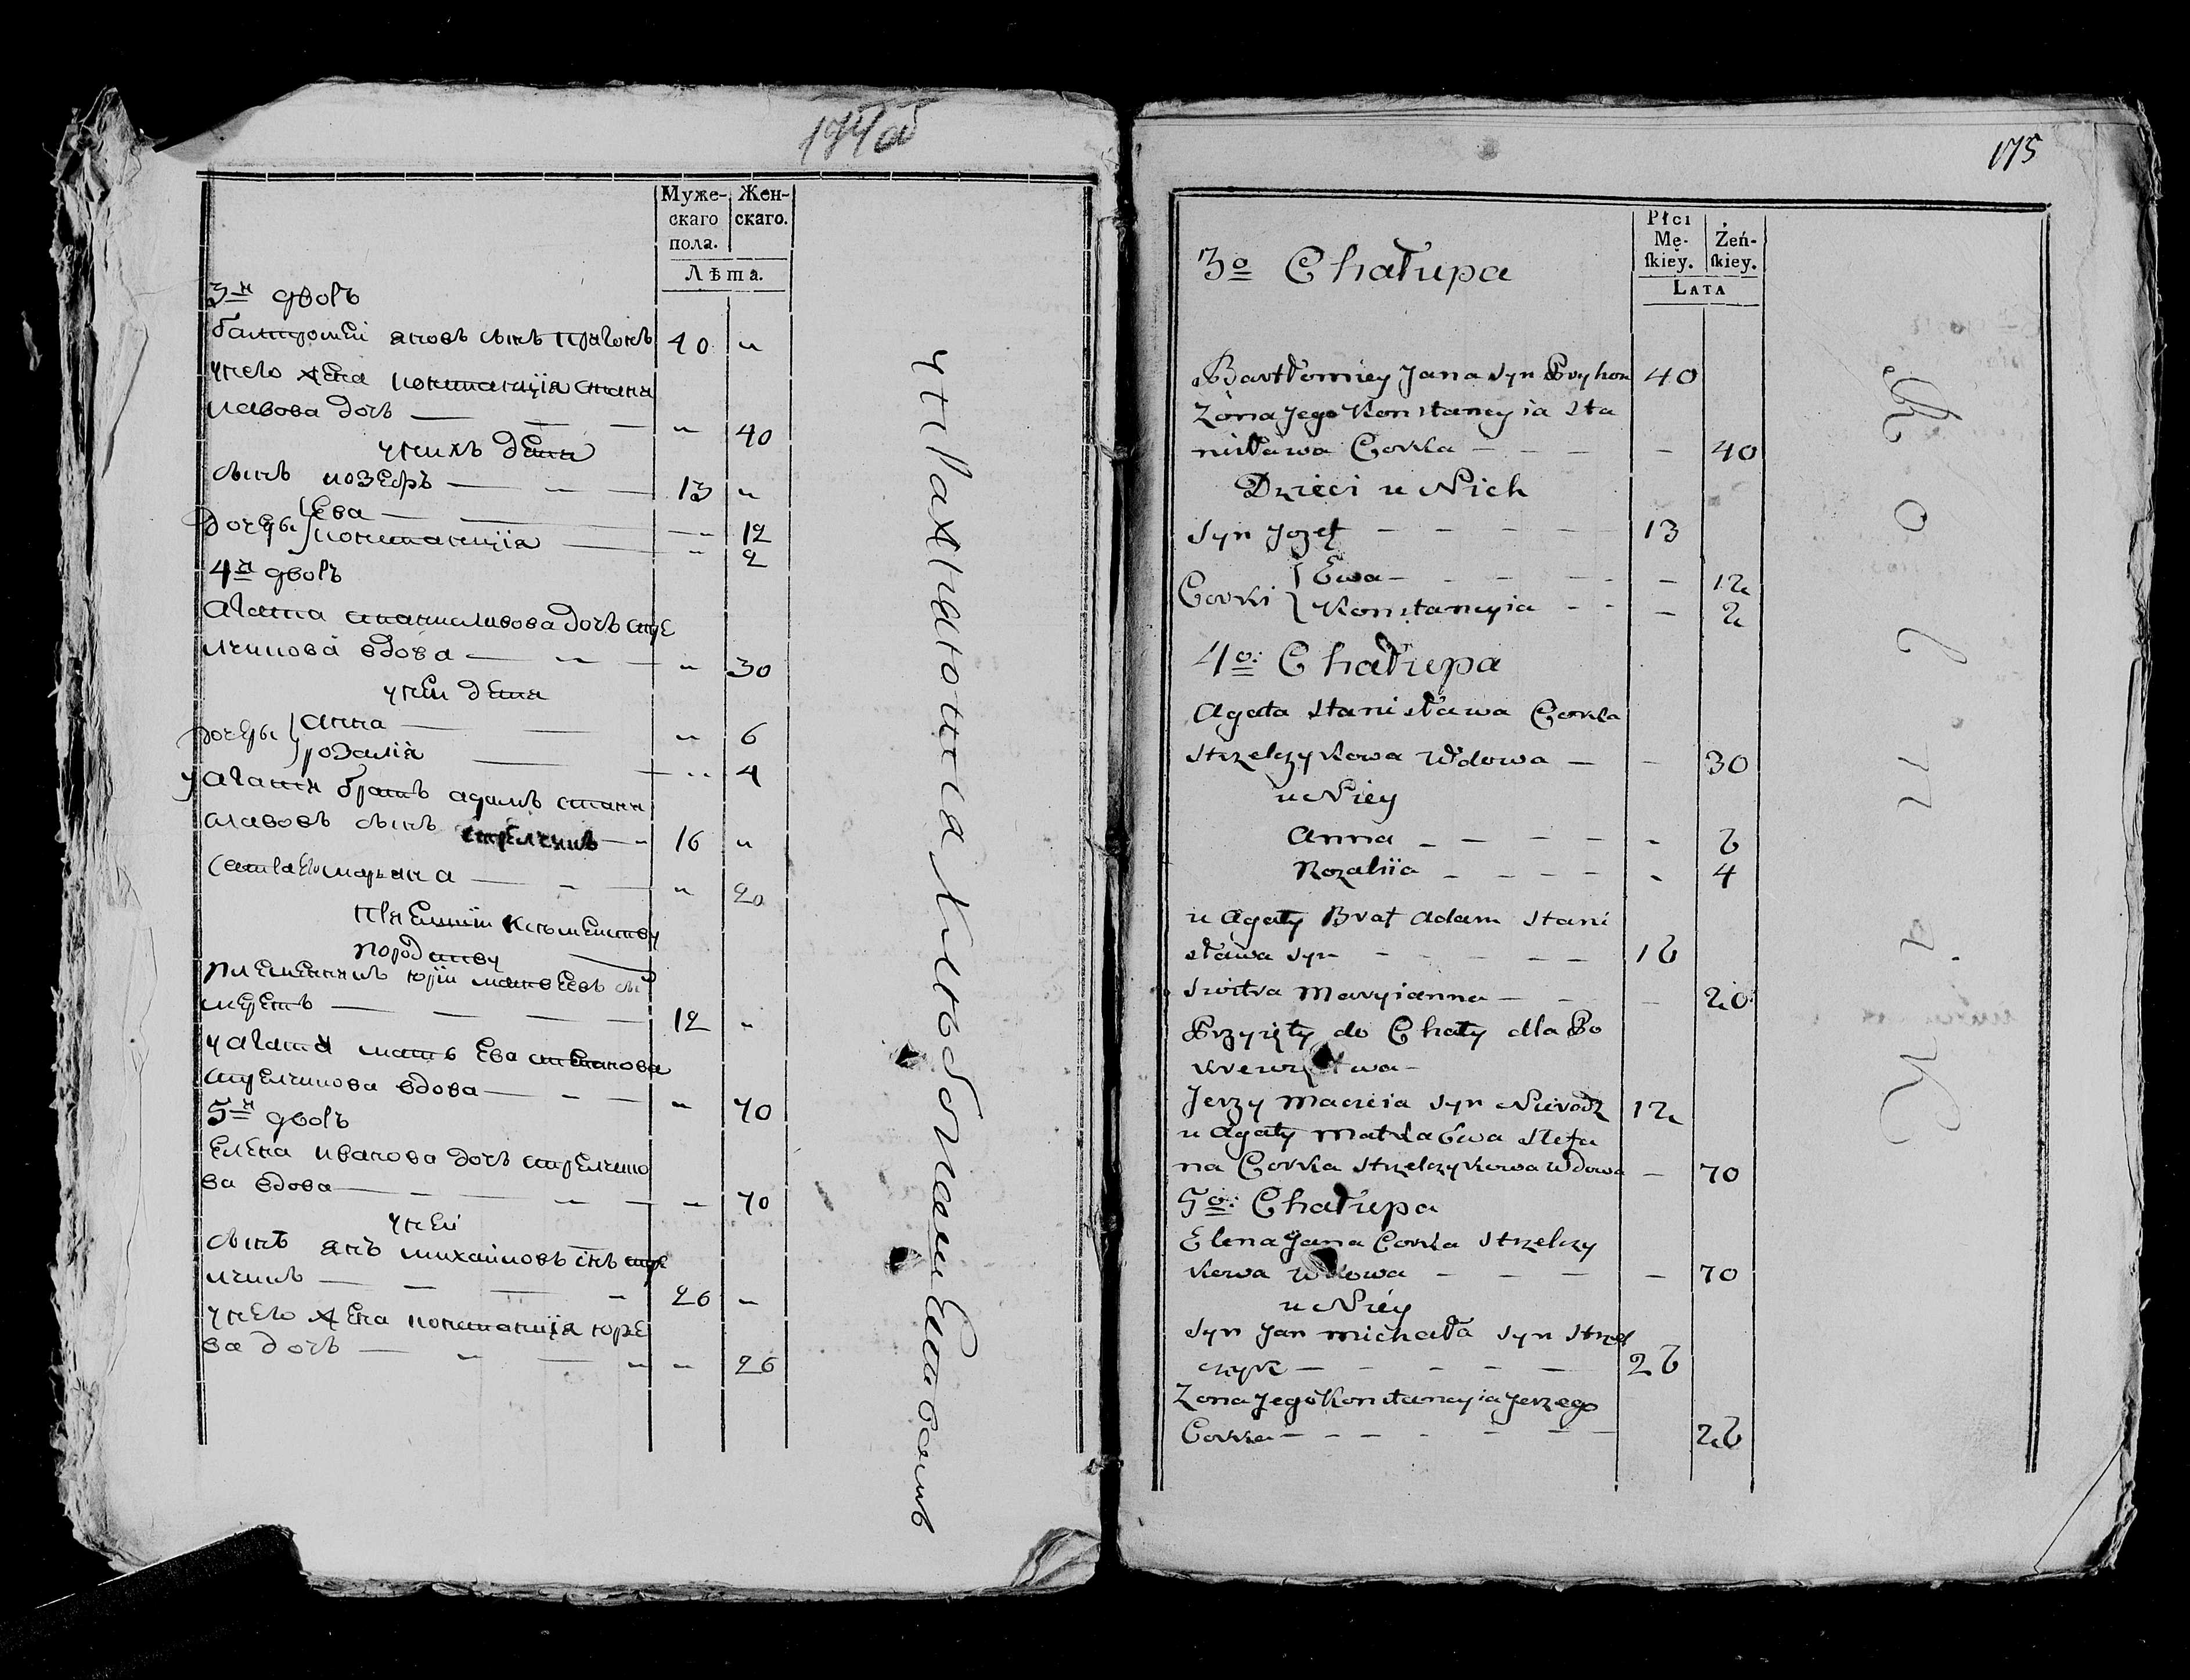 174об
Муже-
скаго
пола.
Жен-
скаго.
Лѣта.
3й дворъ
балтромеі яновъ сынъ 40 „
унего жена констанція стани
лавова дочь — — — „ 40
унихъ дети
сынъ иозефъ — — — 13 „
дочеры ева — — — „ 12
констанція — „ 2
4й дворъ
агата станиславова дочь стре
лчикова вдова — „ — „ 30
уней дети
дочеры анна — — „ 6
розалія — — „ 4
у агати братъ адамъ стани
славовъ сынъ стрелчикъ — „ 16 „
сестра его марьяна — „ — „ 20
породству
племенникъ юрій матвеевъ сы
— — — — 12 „
у агати мать ева стефанова
стрелчикова вдова — „ — „ 70
5й дворъ
елена иванова дочь стрелчико
ва вдова — „ — „ — „ 70
уней
сынъ янъ михайловъ снъ стре
лчикъ — — — „ 26 „
унего жена констанція юре
ва дочь — „ — „ „ 26
175
Płci
Mę-
skiey.
Żeń-
skiey.
LATA
3o Chałupa
Bartłomiey Jana syn Pryhon 40
Zona Jego Konstancyia Sta
nisława Corka — — — — 40
Dzieci u Nich
Syn Jozef — — — — — 13
Corki Ewa — — — — — 12
Konstancyia — — — 2
4o: Chałupa
Agata Stanisława Corka
Strzelczykowa Wdowa — — 30
u Niey
Anna — — — — — 6
Rozaliia — — — — — 4
u Agaty Brat Adam Stani
sława Syn — — — — — 16
Siostra Maryianna — — — 20
Przyięty do Chaty dla Po
krewieństwa —
Jerzy Macieia Syn 12
u Agaty Matka Ewa Stefa
na Corka Strzelczykowa Wdowa — 70
5o: Chałupa
Elena Jana Corka Strzelczy
kowa Wdowa — — — — 70
u Niéy
Syn Jan Michała Syn Strzel
czyk — — — — — 26
Zona Jego Konstancyia Jerzego
Corka — — — — — — 26